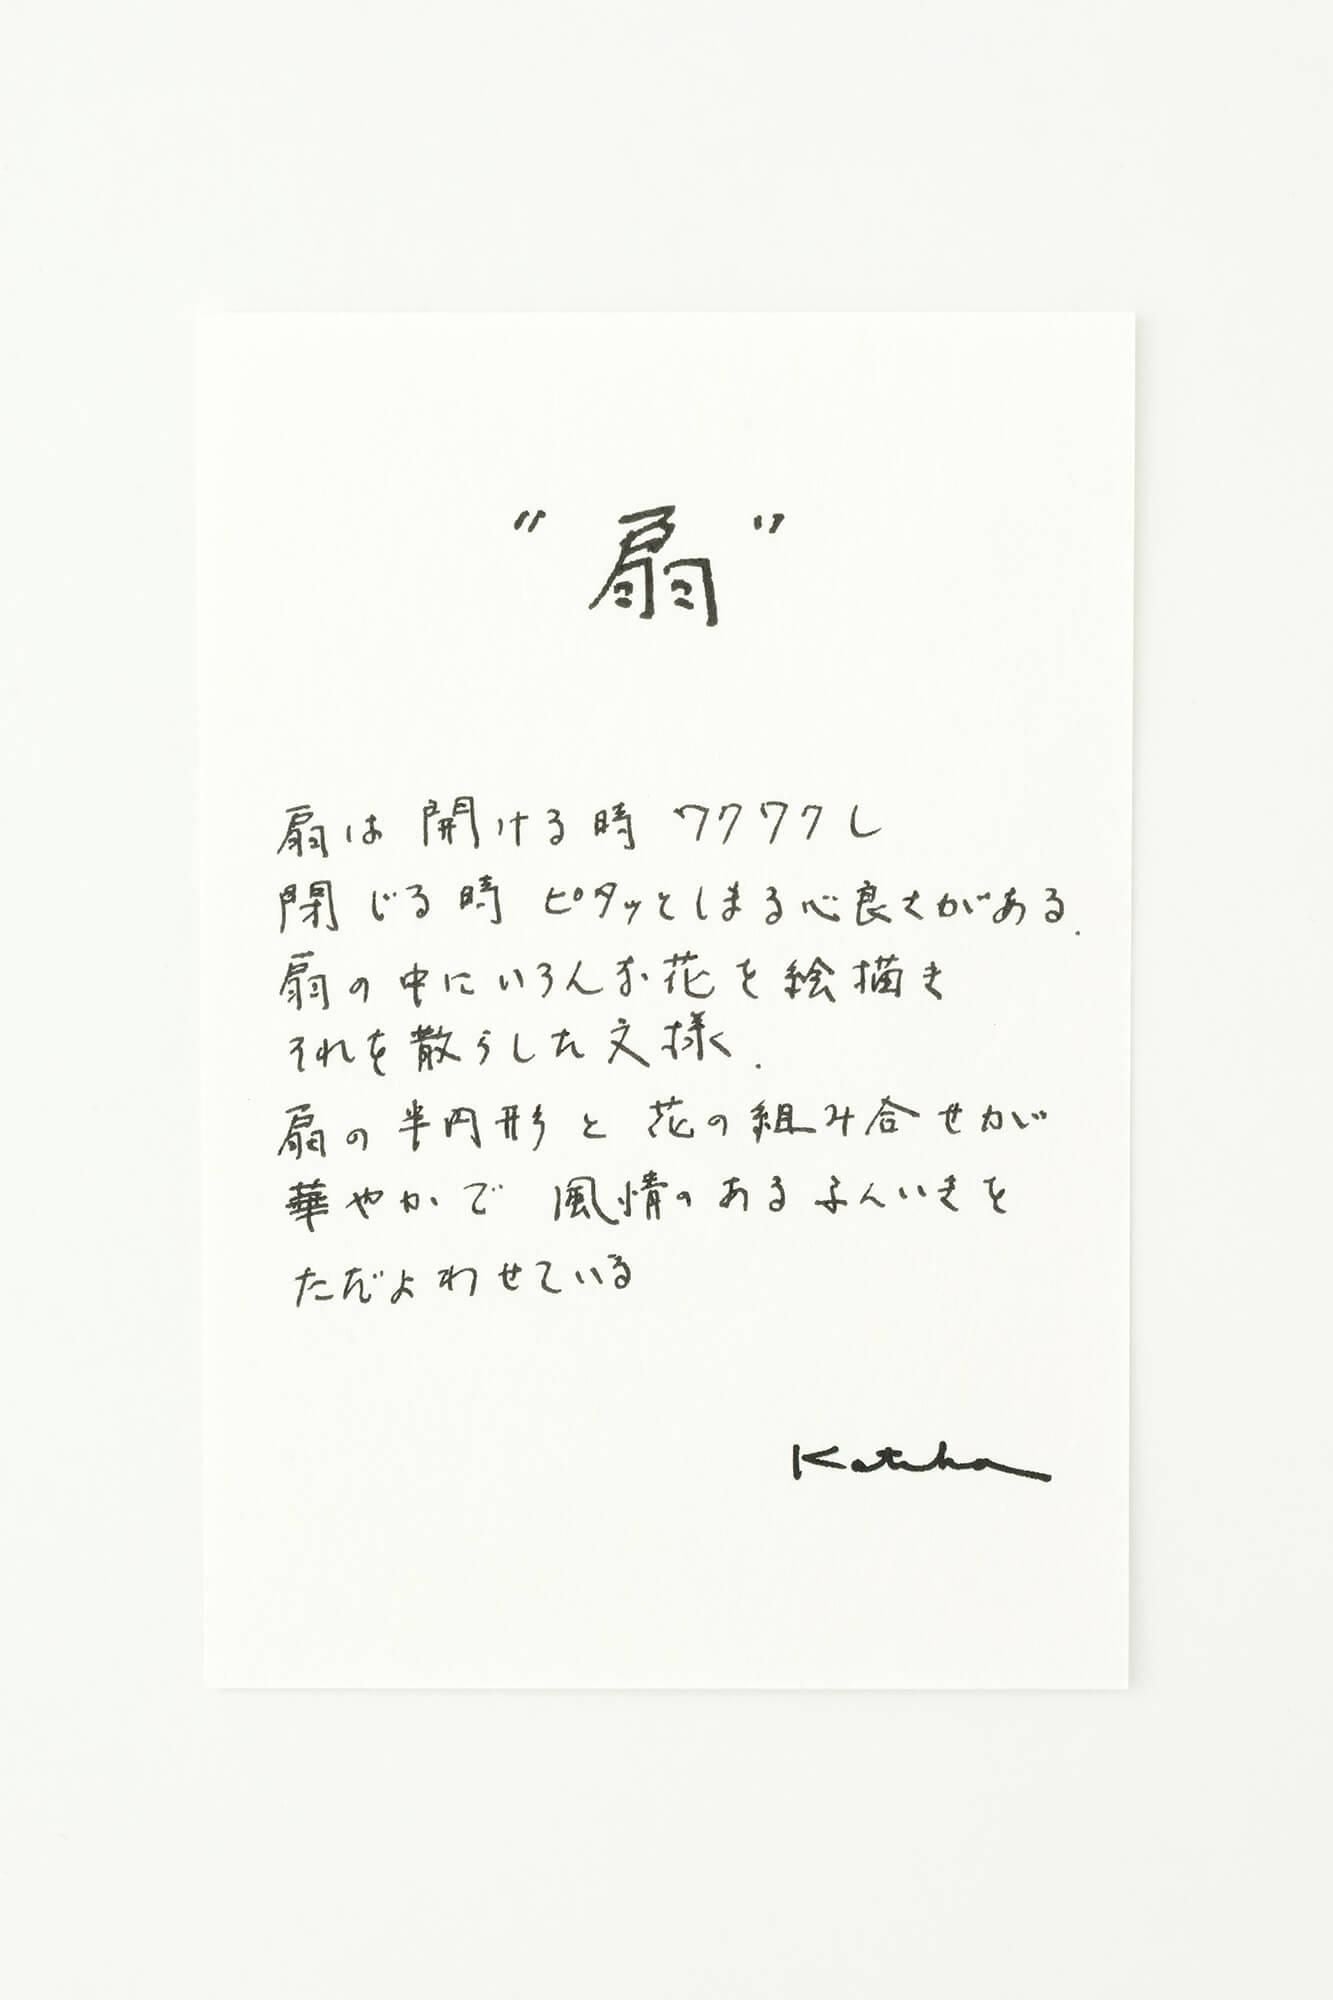 "扇"
扇は 開ける時 ワクワクし
閉じる時 ピタッとしまる心良さがある.
扇の中にいろんな花を絵描き
それを散らした文様.
扇の半円形と 花の組み合せが
華やかで 風情のあるふんいきを
ただよわせている
Katsha